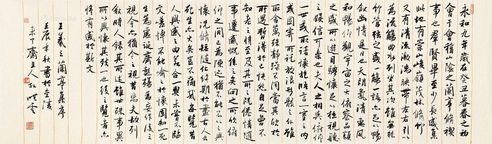 永和九年歲在癸丑暮春之初
會于會稽山陰之蘭亭脩禊
事也羣賢畢至少長咸集
此地有崇山峻領茂林脩竹
又有清流激湍映帶左右引以
為流觴曲水列坐其次雖無絲
竹管弦之盛一觴一詠亦足以暢
敘幽情是日也天朗氣清惠風
和暢仰觀宇宙之大俯察品類
之盛所以遊目騁懷足以極視聽
之娛信可樂也夫人之相與俯仰
一世或取諸懷抱悟言一室之內
或因寄所託放浪形骸之外雖
趣舍萬殊靜躁不同當其欣於
所遇暫得於己快然自足不知老
之將至及其所之既惓情隨
事遷感慨係之矣向之所欣俛
仰之間已為陳迹猶不能不以之興
懷況脩短隨化終期於盡古人云
死生亦大矣豈不痛哉每攬昔
人興感之由若合一契未嘗不臨
文嗟悼不能喻之於懷固知一死
生為虛誕齊彭殤為妄作後之
視今亦由今之視昔悲夫故列
敘時人錄其所述雖世殊事異
所以興懷其致一也後之覽者亦
將有感於斯文
王羲之蘭亭集序
壬辰中秋書於
齋主人